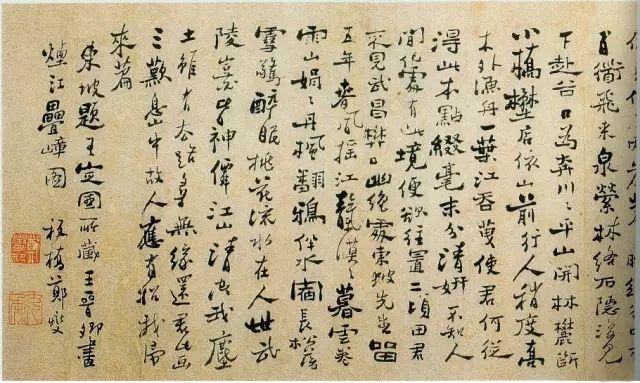 百衜飛来泉縈林絡石隱復見
下赴谷口為奔川〻平山開林麓斷
小橋壄居依山前行人稍度高
木外漁舟一葉江吞天使君何從
淂此本點綴毫末分清妍不知人
間何處有此境便欲往置二頃田君
不見武昌樊口幽絶處東坡先生畱
五年春風摇江天漠〻暮雲卷
雨山娟〻丹楓翻鴉伴水宿長松落
雪驚醉眠桃花流水在人世武
陵豈必神僊江山清空我塵
土雖有去路尋無緣還君此畫
三歎息山中故人應有招我歸
來篇
東坡題王定國所藏王晉卿畫
煙江疊嶂圖 板橋鄭燮